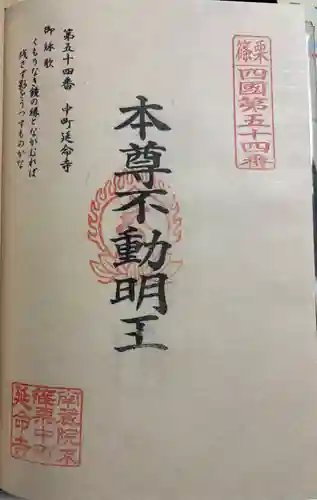 篠栗
四國第五十四番
第五十四番 中町延命寺
御詠歌
くもりなき鏡の縁とながむれば
残さず影をうつすものかな
本尊不動明王
南蔵院不
篠栗中町
延命寺